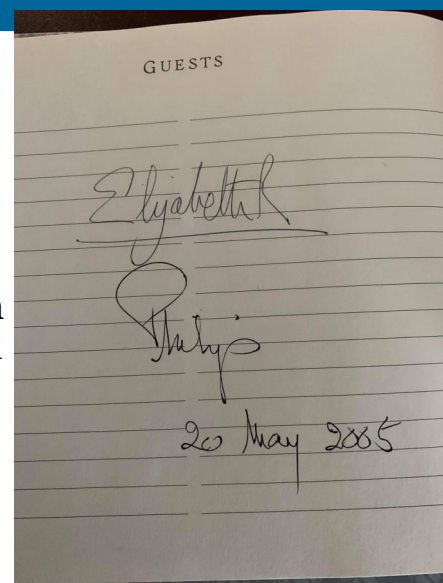 GUESTS
Elizabeth R
Philip
20 May 2005